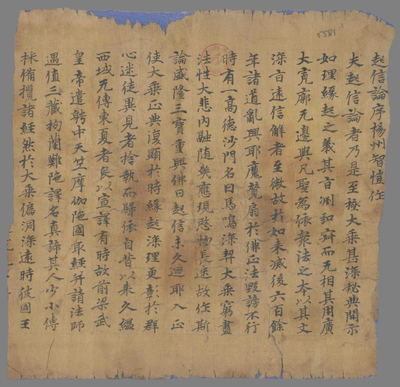 起信論序揚州智愷作
夫起信論者乃是至極大乘甚深秘典開示
如理緣起之義其旨渕和齊而无相其用廣
大寛廓无邊與凡聖為依衆法之本以其文
深旨遠信解者至微故於如来滅後六百餘
年諸道亂興耶魔競扇於佛正法毀謗不行
時有一高德沙門名曰馬鳴深契大乘窮盡
法性大悲内融随機應現愍物長迷故作斯
論盛隆三寶重興佛日起信未久迴耶入正
使大乘正典復顯於時緣起深理更彰於群
心迷徒異見者捨執而歸依自昔以来久緼
西域无傳東夏者良以宣譯有時故前梁武
皇帝遣聘中天竺摩伽陁國取經并請法師
遇值三藏拘蘭難陁譯名真諦其人少小博
採俻攬諸經然於大乘偏洞深遠時彼國王